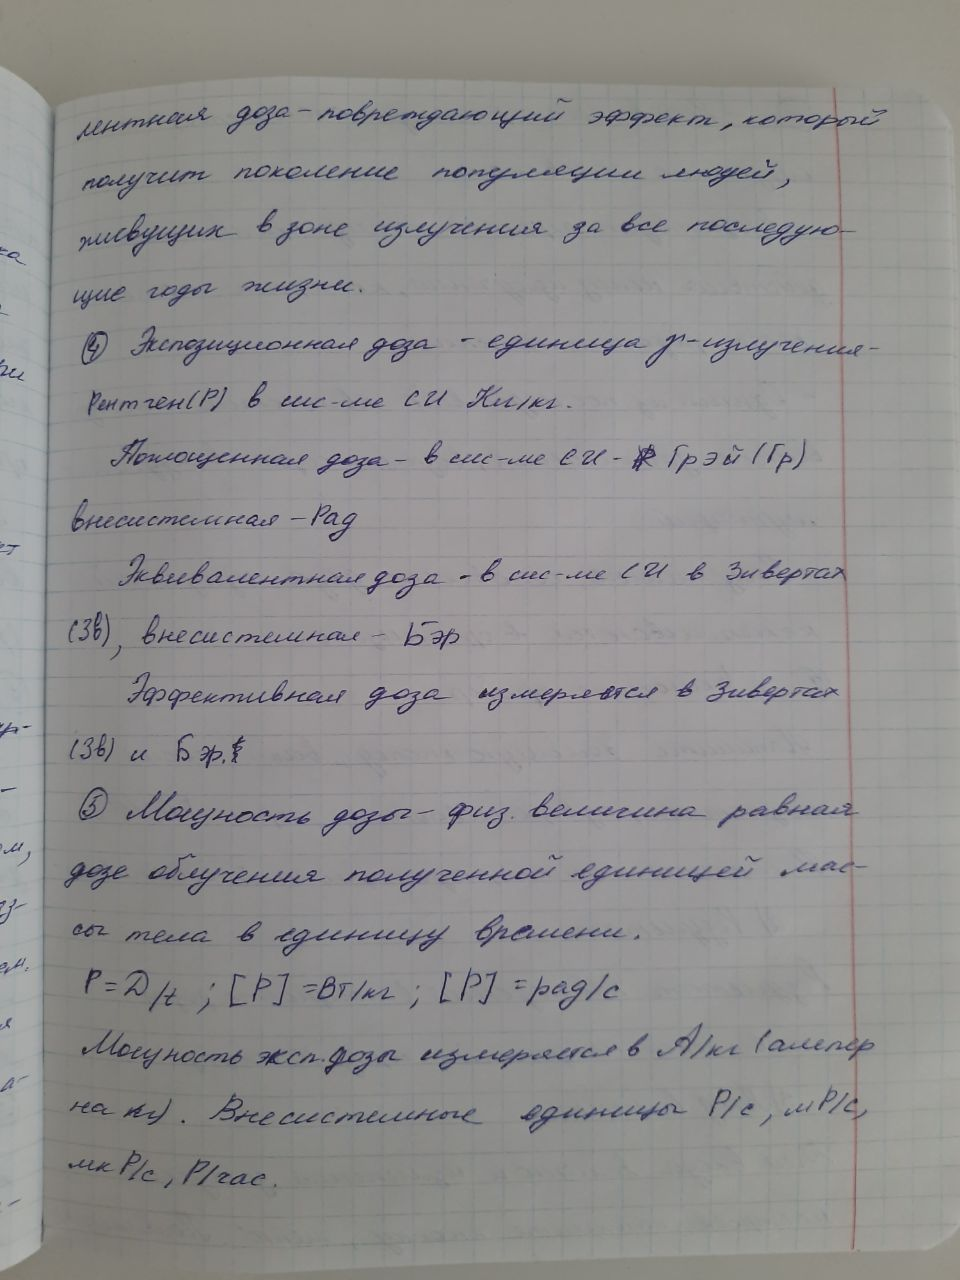 лентная доза - повреждающий эффект, который
получит поколение популяции людей,
живущих в зоне излучения за все последую-
щие годы жизни.
④ Экспозиционная доза - единица γ-излучения-
Рентген(Р) в сис-ме СИ Кл/кг.
Поглощенная доза - в сис-ме СИ - Грэй (Гр)
внесистемная - Рад
Эквивалентная доза - в сис-ме СИ в Зивертах
(Зв), внесистемная - Бэр
Эффективная доза измеряется в Зивертах
(Зв) и Бэр.
⑤ Мощность дозы - физ. величина равная
дозе облучения полученной единицей мас-
сы тела в единицу времени.
P = D/t ; [P] = Вт/кг ; [P] = рад/с
Мощность эксп. дозы измеряется в А/кг (ампер
на кг). Внесистемные единицы Р/с, мР/с,
мкР/с, Р/час.